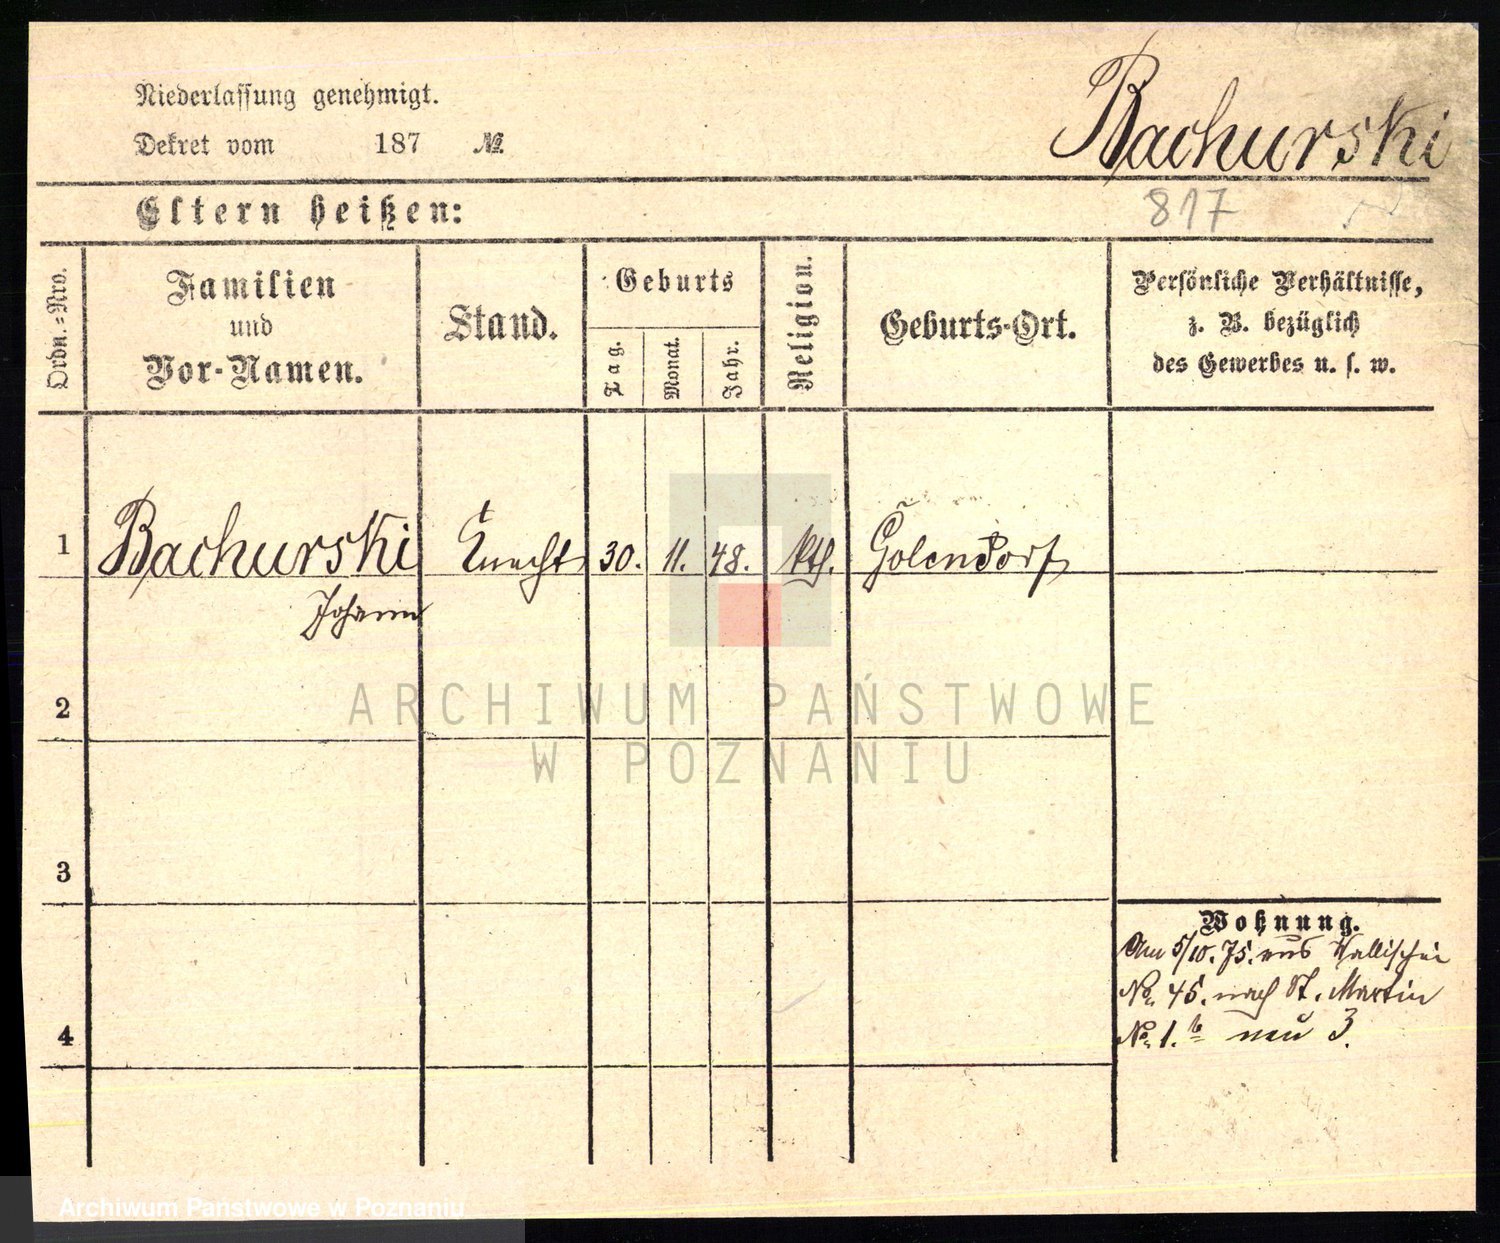 Niederlassung genehmigt.
Bachurski
Dekret vom 187 №
817
Eltern heißen:
Ordn.=Nro.
Familien
und
Vor-Namen.
Stand.
Geburts
Tag.
Monat.
Jahr.
Religion.
Geburts-Ort.
Persönliche Verhältnisse,
z. B. bezüglich
des Gewerbes u. s. w.
1 Bachurski Knecht 30. 11. 48. kth. Golendorf
Johann
2
ARCHIWUM PAŃSTWOWE
W POZNANIU
3
Wohnung.
Am 5/10. 75. aus Wallischei
No. 45. nach St. Martin
4
No. 1.b neu 3.
Archiwum Państwowe w Poznaniu